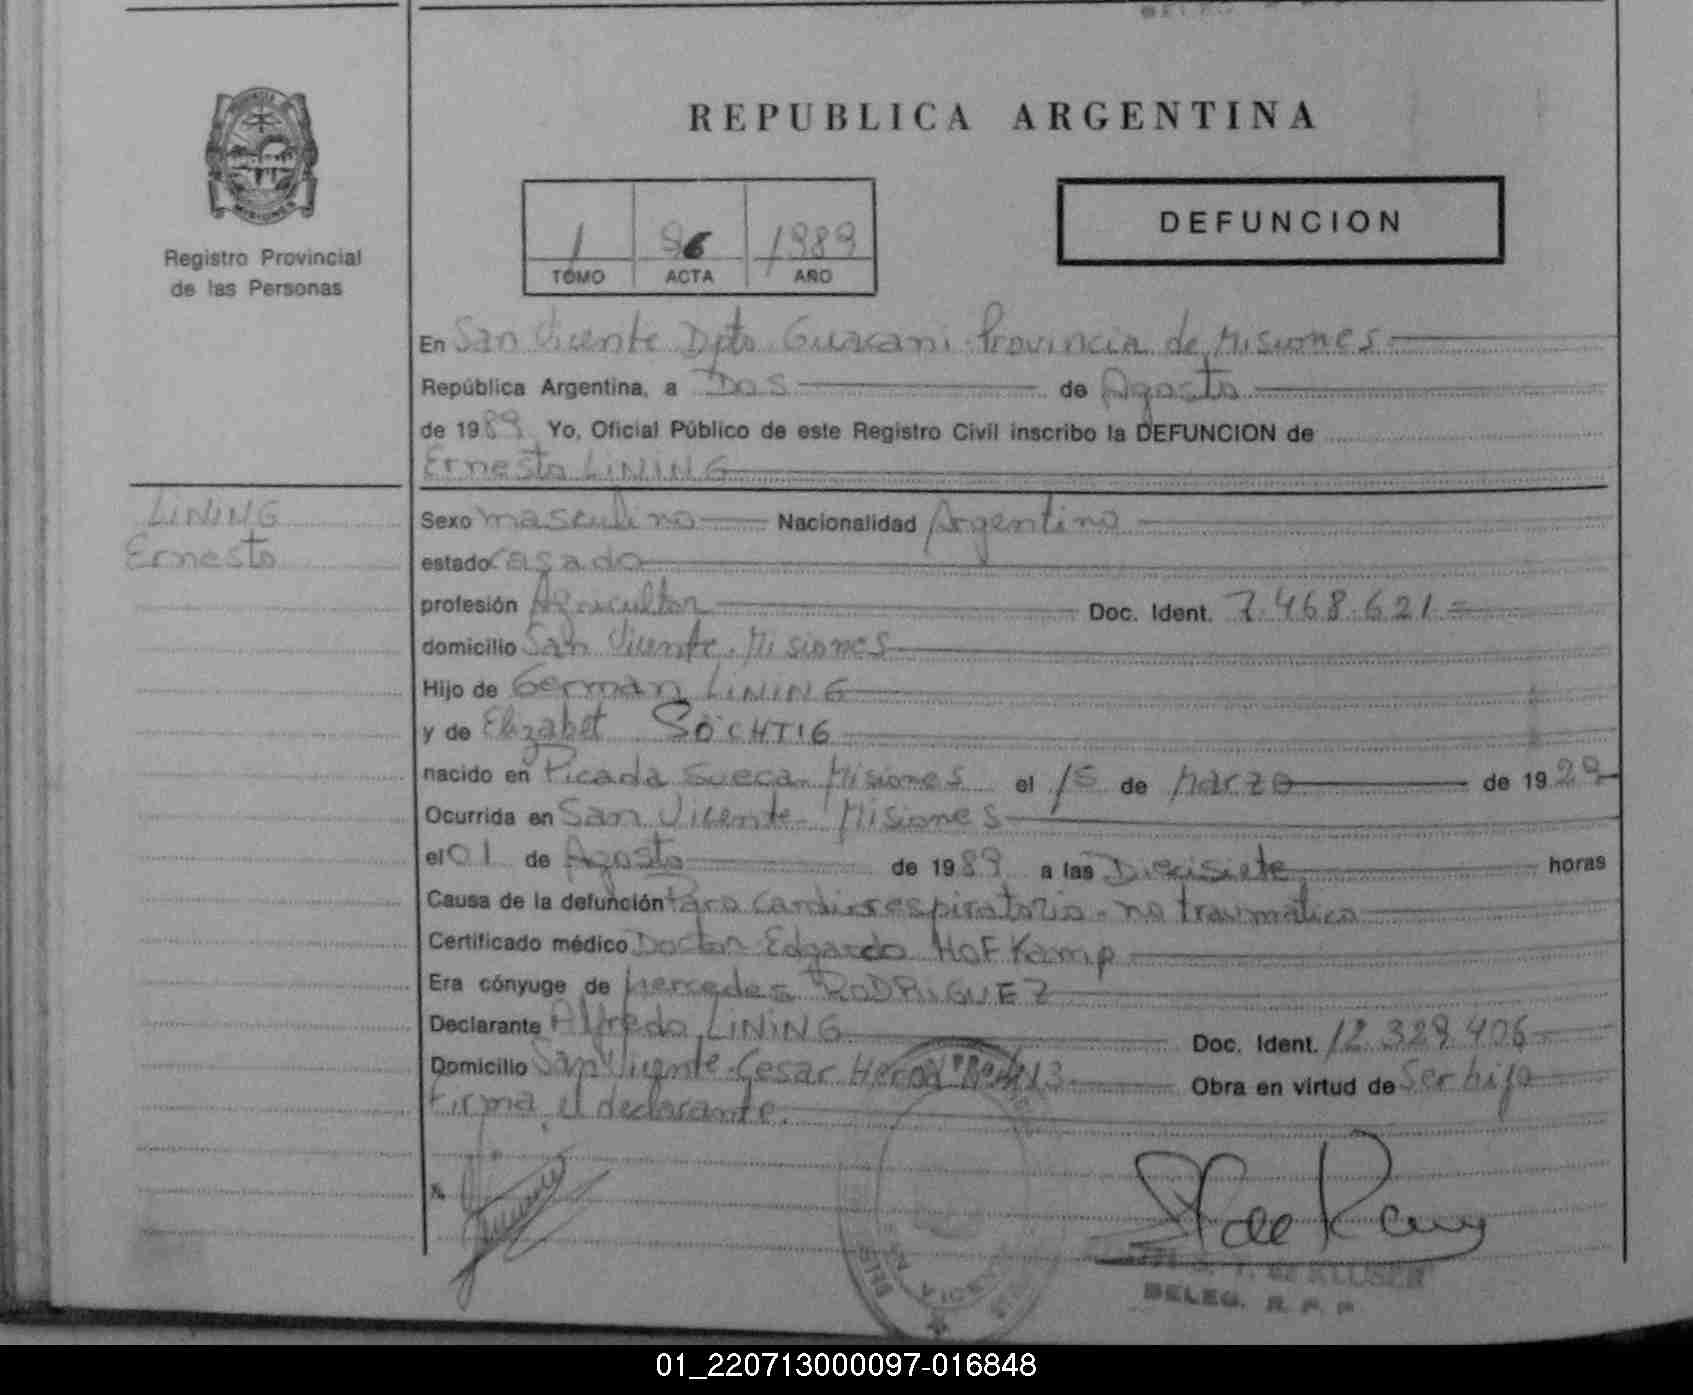 REPUBLICA ARGENTINA
MISIONES
Registro Provincial
de las Personas
1 96 1989
TOMO ACTA AÑO
DEFUNCION
En San Vicente Dpto Guarani Provincia de Misiones
República Argentina, a Dos de Agosto
de 1989 Yo, Oficial Público de este Registro Civil inscribo la DEFUNCION de
Ernesto LINING
LINING
Ernesto
Sexo masculino Nacionalidad Argentino
estado casado
profesión Agricultor Doc. Ident. 7.468.621
domicilio San Vicente. Misiones
Hijo de German LINING
y de Elizabet SÖCHTIG
nacido en Picada Sueca Misiones el 15 de Marzo de 1929
Ocurrida en San Vicente - Misiones
el 01 de Agosto de 1989 a las Diecisiete horas
Causa de la defunción Paro cardiorrespiratorio - no traumatico
Certificado médico Doctor Edgardo HOFKamp
Era cónyuge de Mercedes RODRIGUEZ
Declarante Alfredo LINING Doc. Ident. 12.329.406
Domicilio San Vicente - Cesar Obra en virtud de Ser hijo
Firma el declarante.
DE KLUSER
DELEG. R. P. P.
01_220713000097-016848